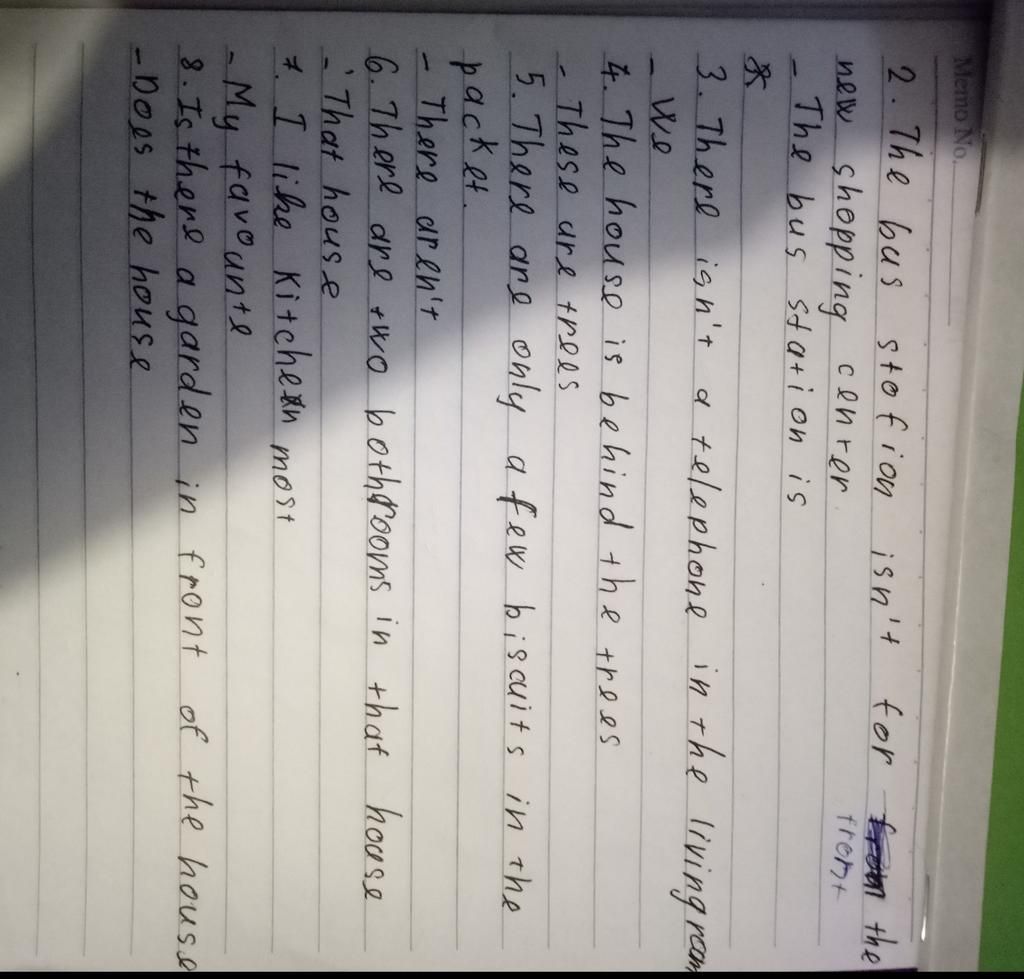 Memo No.
2. The bus stofion isn't for from the
front
new shopping center
- The bus station is
3. There isn't a telephone in the living room
- We
4. The house is behind the trees
- These are trees
5. There are only a few biscuits in the
packet.
- There aren't
6. There are two bothrooms in that house
- That house
7. I like Kitchen most
- My favounte
8. Is there a garden in front of the house
- Does the house